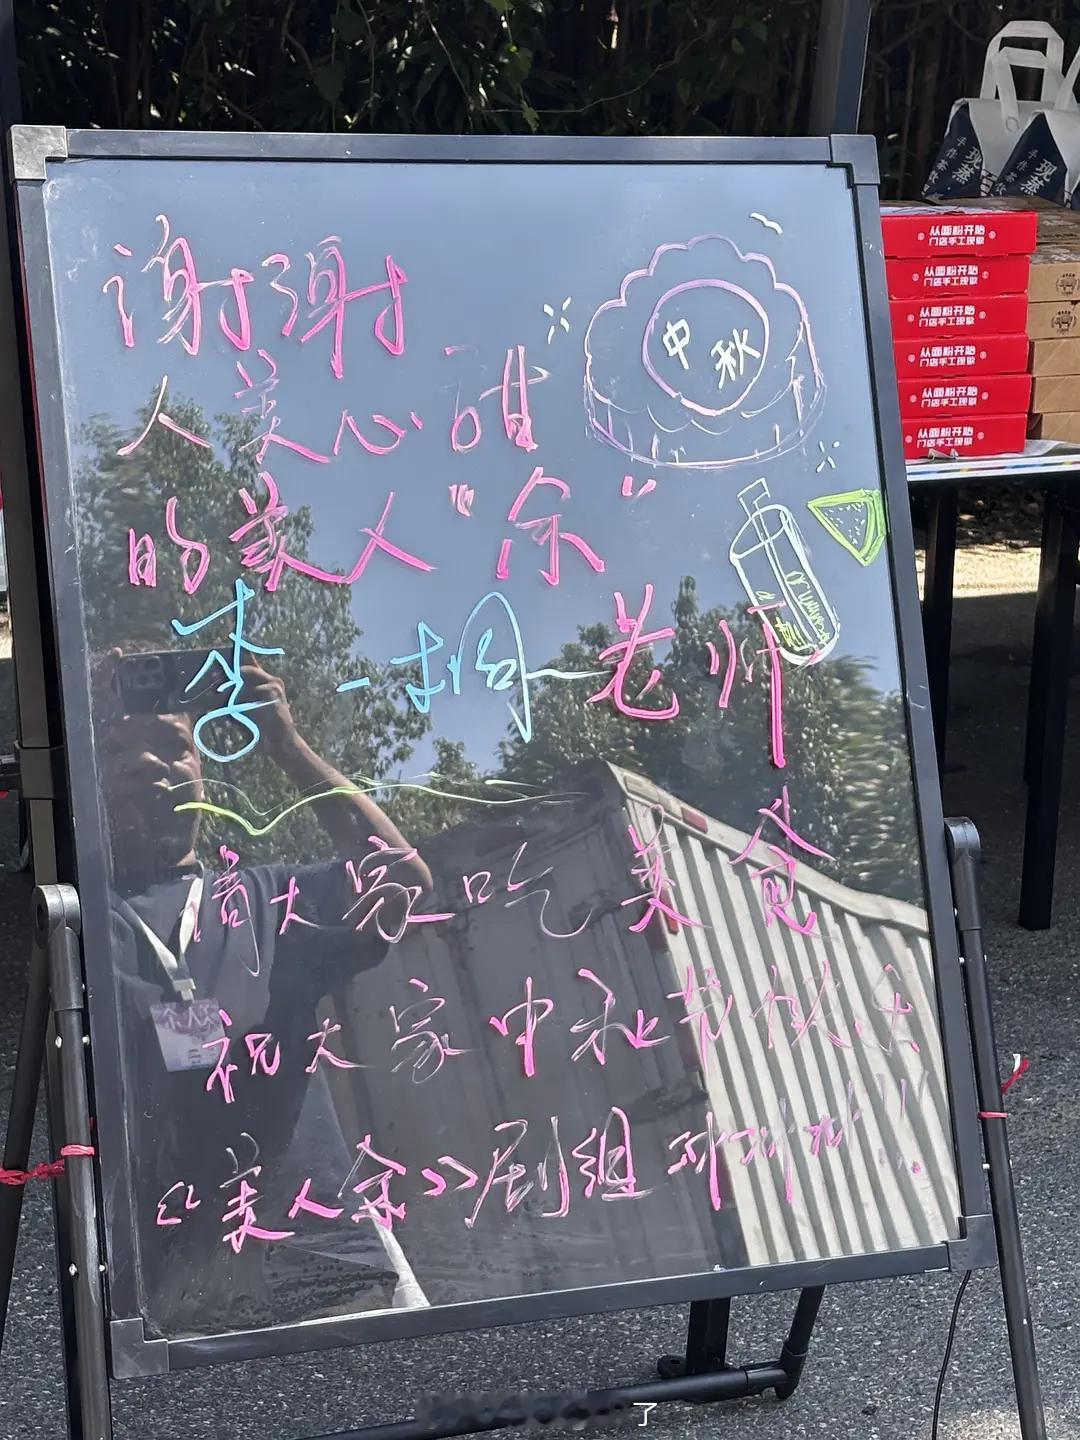 谢谢
人美心甜
的美人“余”
李一桐老师
请大家吃美食
祝大家中秋节快乐
《美人余》剧组
中秋
现蒸
手作茶饮
现蒸
手作茶饮
从面粉开始
门店手工现做
从面粉开始
门店手工现做
从面粉开始
门店手工现做
从面粉开始
门店手工现做
从面粉开始
门店手工现做
从面粉开始
门店手工现做
了